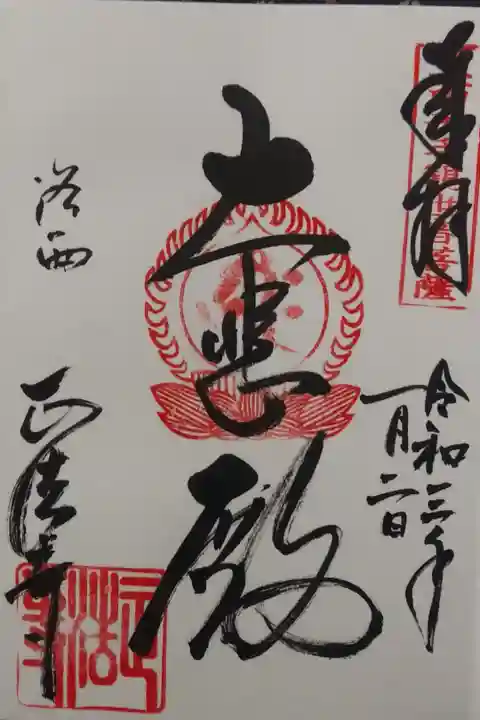 奉拝
令和三年
一月二日
大悲殿
洛西
正法寺
正法寺